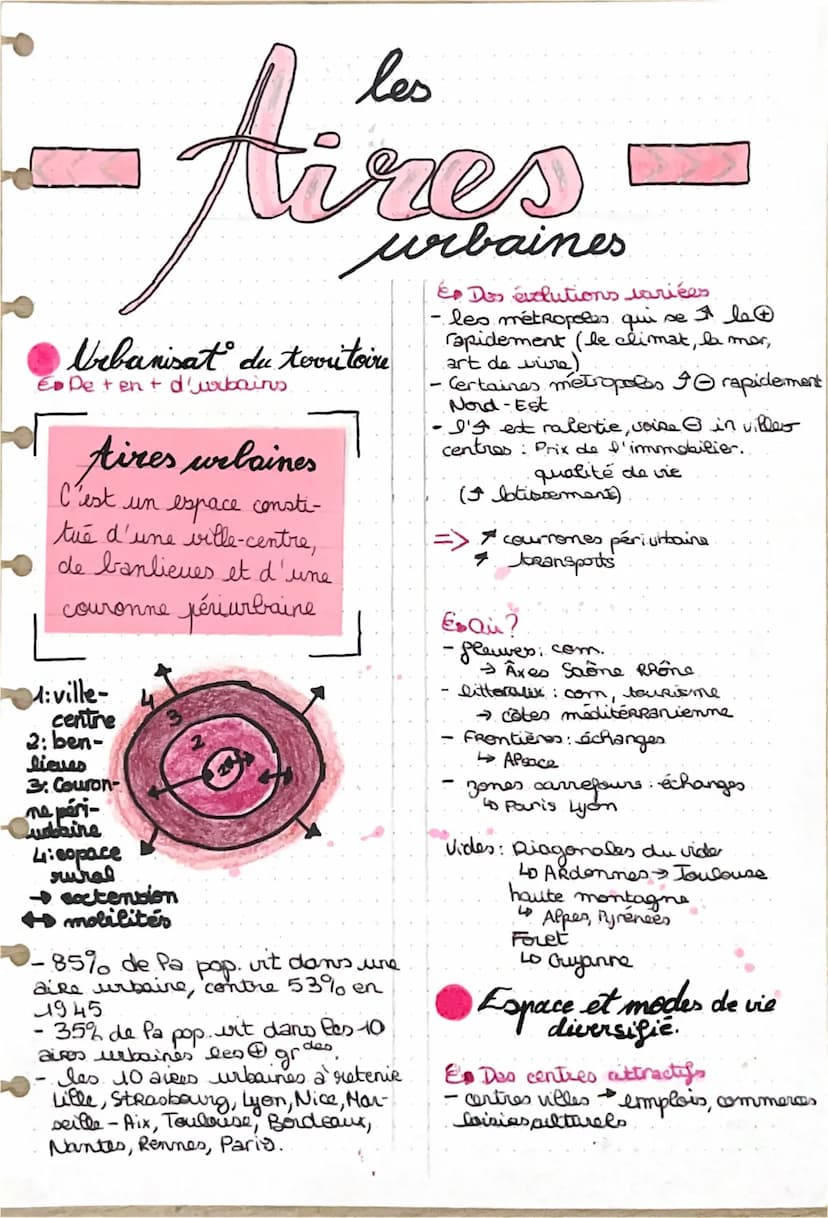 les
Aires
urbaines
Urbanisat° du territoire
De + en + d'urbains
Aires urbaines
C'est un espace consti-
tué d'une ville-centre,
de banlieues et d'une
couronne périurbaine
1: ville-
centre
2: ban-
lieues
3: Couron-
ne péri-
urbaine
4: espace
rural
→ extension
↔ mobilités
4
3
2
1
- 85% de la pop. vit dans une
aire urbaine, contre 53% en
1945
- 35% de la pop. vit dans les 10
aires urbaines les ⊕ gr des.
- les 10 aires urbaines à retenir
Lille, Strasbourg, Lyon, Nice, Mar-
seille - Aix, Toulouse, Bordeaux,
Nantes, Rennes, Paris.
Des évolutions variées
- les métropoles qui se ↗ le ⊕
rapidement (le climat, la mer,
art de vivre)
- Certaines métropoles ↗ ⊖ rapidement
Nord-Est
- l'↗ est ralentie, voire ⊖ in villes
centres : Prix de l'immobilier.
qualité de vie
(↗ lotissement)
⇒ ↗ couronnes périurbaine
↗ transports
Où?
- fleuves: com.
→ Âxes Saône Rhône
- littoralix : com, tourisme
→ côtes méditérranienne
- Frontières: échanges
↳ Alsace
- zones carrefours : échanges
↳ Paris Lyon
Vides: Diagonales du vide
↳ Ardennes → Toulouse
haute montagne
↳ Alpes, Pyrénées
Foret
↳ Guyanne
Espace et modes de vie
diversifié.
Des centres attractifs
- centres villes → emplois, commerces
loisirs culturels